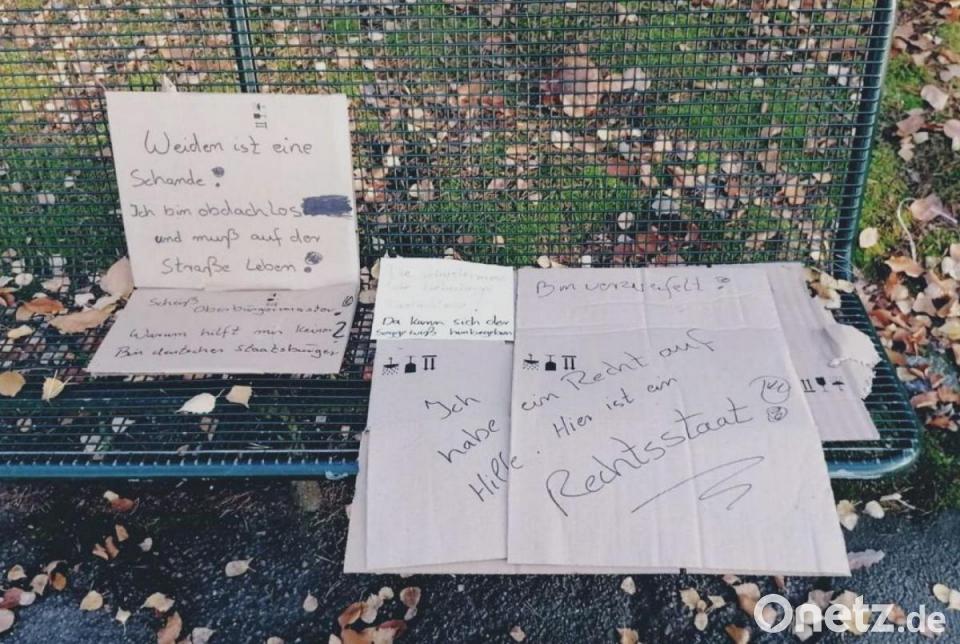 Weiden ist eine
Schande!
Ich bin obdachlos
und muß auf der
Straße Leben!
Scheiß Oberbürgermeister!
Warum hilft mir keiner?
Bin deutscher Staatsbürger
Da kann sich der
Bin verzweifelt!
Ich habe ein Recht auf
Hilfe. Hier ist ein
Rechtsstaat
Onetz.de